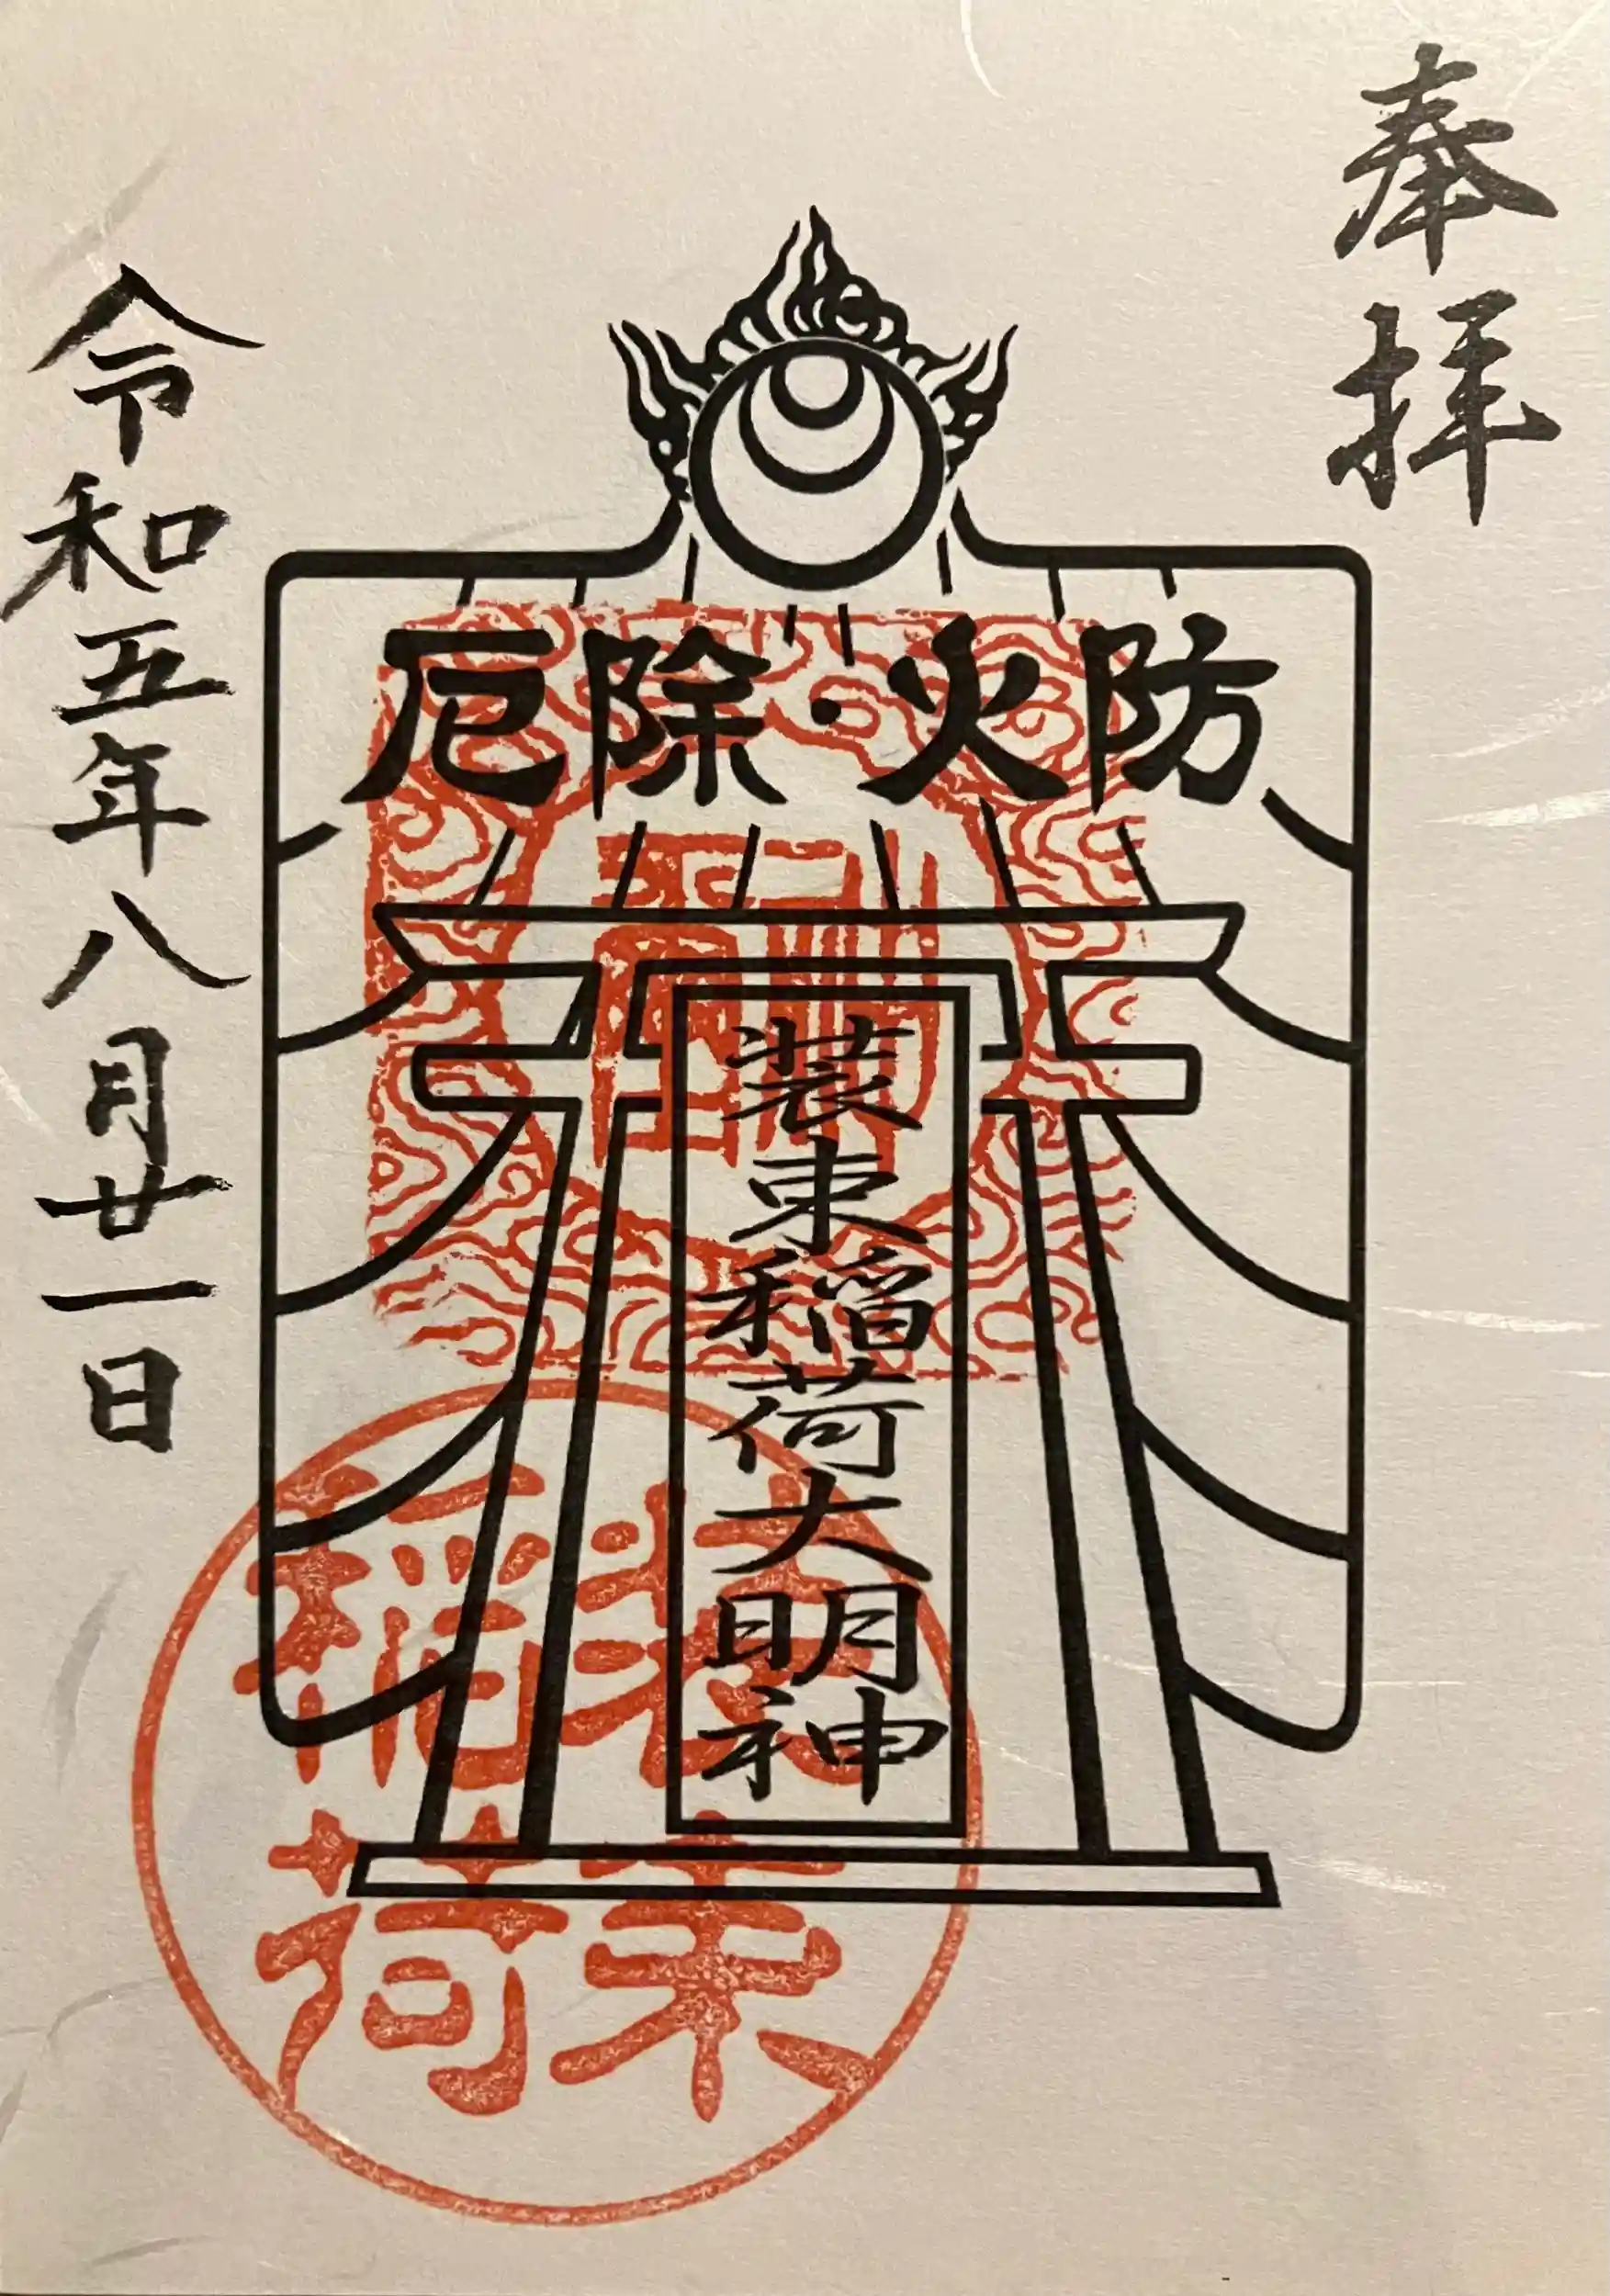 奉拝
厄除・火防
装束稲荷大明神
令和五年八月廿一日
装束
稲荷